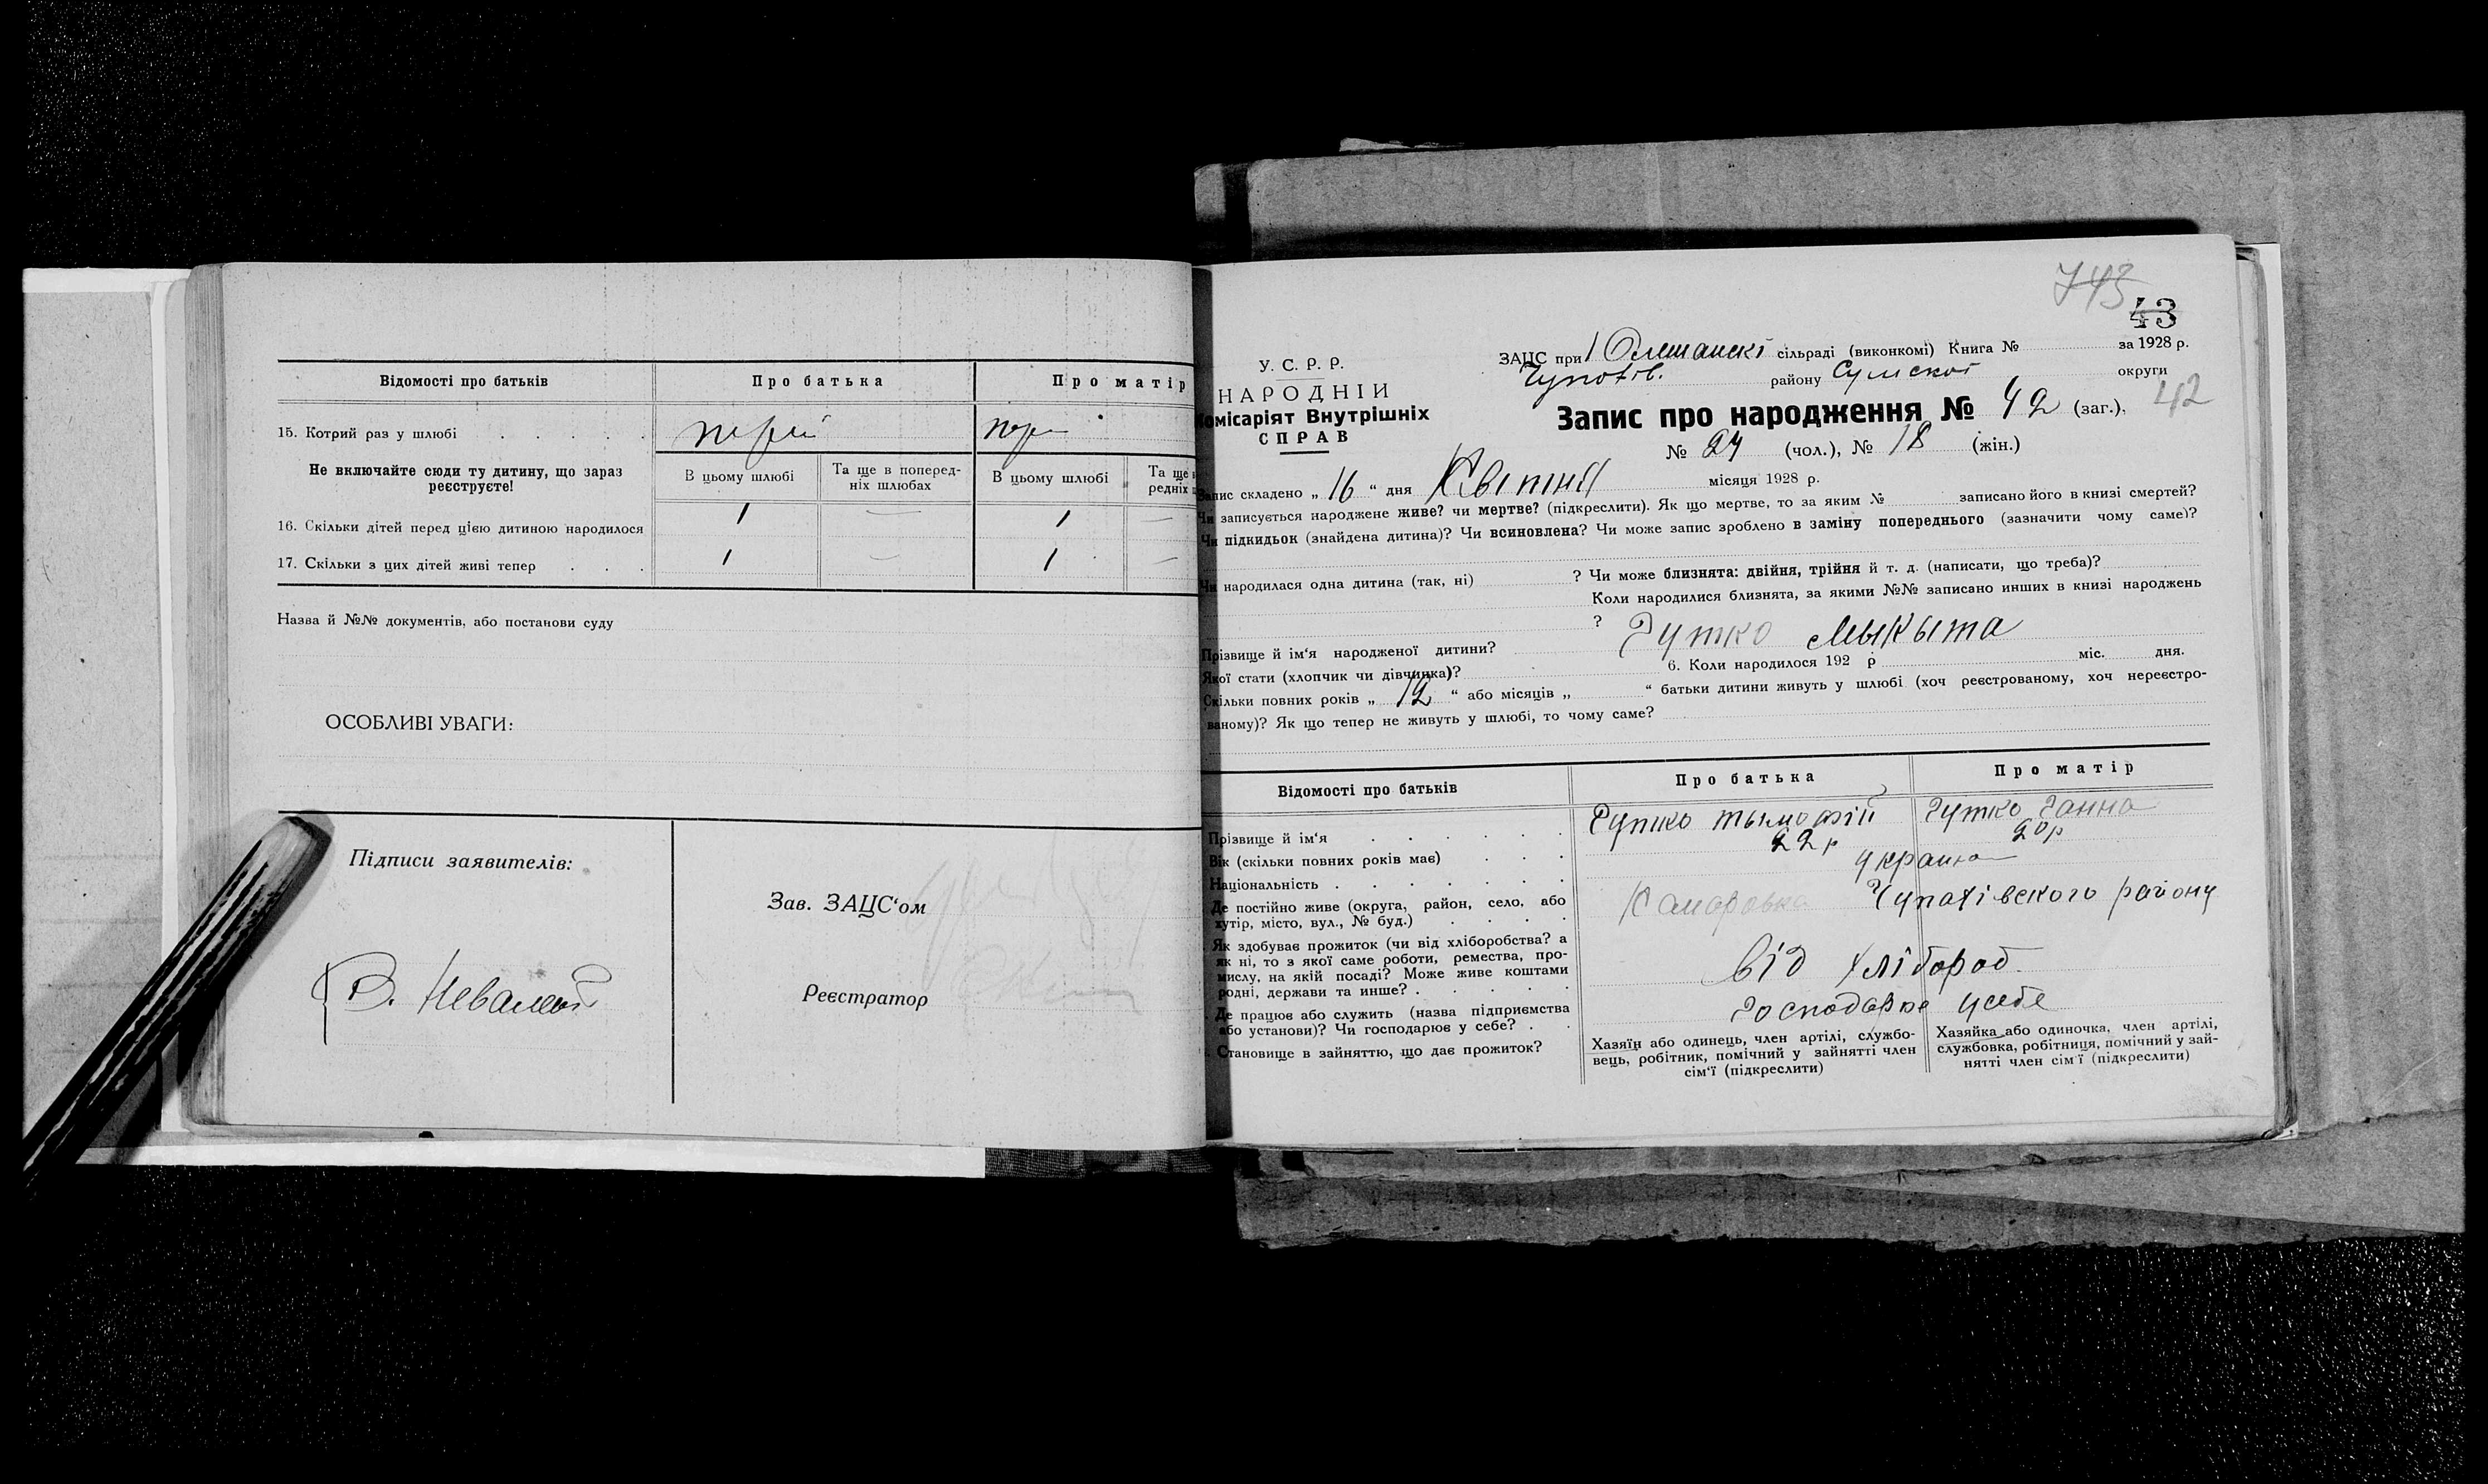 Відомості про батьків
Про батька
Про матір
15. Котрий раз у шлюбі
Не включайте сюди ту дитину, що зараз реєструєте!
В цьому шлюбі
Та ще в поперед-
ніх шлюбах
В цьому шлюбі
Та ще
редніх
16. Скільки дітей перед цією дитиною народилося 1 — 1 —
17. Скільки з цих дітей живі тепер 1 — 1 —
Назва й №№ документів, або постанови суду
ОСОБЛИВІ УВАГИ:
Підписи заявителів:
Зав. ЗАЦС'ом
Реєстратор
743
43
У. С. Р. Р.
НАРОДНІЙ
омісаріят Внутрішніх
СПРАВ
ЗАЦС при сільраді (виконкомі) Книга № за 1928 р.
району Сумскої округи
Запис про народження № 42 (заг.), 42
№ 24 (чол.), № 18 (жін.)
Запис складено „ 16 “ дня Квітня місяця 1928 р.
Чи записується народжене живе? чи мертве? (підкреслити). Як що мертве, то за яким № записано його в книзі смертей?
Чи підкидьок (знайдена дитина)? Чи всиновлена? Чи може запис зроблено в заміну попереднього (зазначити чому саме)?
Чи народилася одна дитина (так, ні) ? Чи може близнята: двійня, трійня й т. д. (написати, що треба)?
Коли народилися близнята, за якими №№ записано инших в книзі народжень
?
Прізвище й ім'я народженої дитини? Гутко Мыкыта
Якої стати (хлопчик чи дівчинка)? 6. Коли народилося 192 р міс. дня.
Скільки повних років „ 12 “ або місяців „ “ батьки дитини живуть у шлюбі (хоч реєстрованому, хоч нереєстро-
ваному)? Як що тепер не живуть у шлюбі, то чому саме?
Відомості про батьків
Про батька
Про матір
Прізвище й ім'я Гутко Тымофій Гутко Ганна
Вік (скільки повних років має) 22 р 20 р
Національність
Де постійно живе (округа, район, село, або
хутір, місто, вул., № буд.) Комаровка Чупахівского району
Як здобуває прожиток (чи від хліборобства? а
як ні, то з якої саме роботи, ремества, про-
мислу, на якій посаді? Може живе коштами
родні, держави та инше? Від хлібород.
Де працює або служить (назва підприємства
або установи)? Чи господарює у себе? Господарює у себе
Становище в зайняттю, що дає прожиток?
Хазяїн або одинець, член артілі, службо-
вець, робітник, помічний у зайнятті член
сім'ї (підкреслити)
Хазяйка або одиночка, член артілі,
службовка, робітниця, помічний у зай-
нятті член сім'ї (підкреслити)